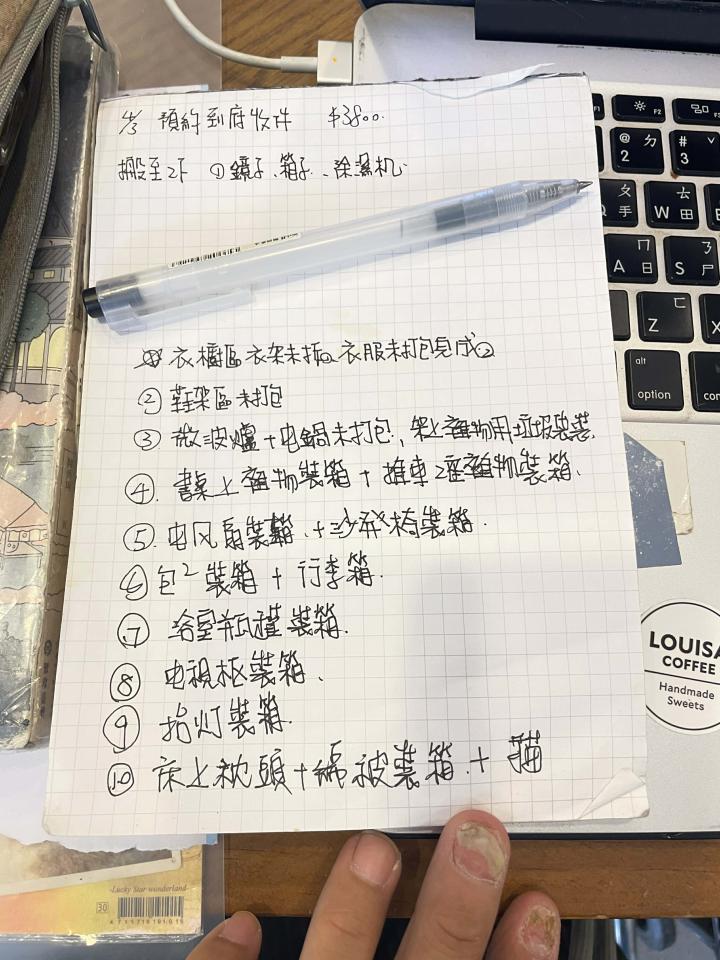 4/3 預約到府收件 $3800.
搬至2F ①鏡子、箱子、除濕机.
衣櫥區衣架未拆 衣服未打包
② 鞋架區未打包
③ 微波爐+电鍋未打包, 架上植物用垃圾袋裝.
④. 書桌上植物裝箱+推車2座植物裝箱.
⑤. 电风扇裝箱.+沙發椅裝箱.
⑥ 包²裝箱+行李箱.
⑦ 浴室瓶罐裝箱.
⑧ 电視柜裝箱.
⑨ 抬灯裝箱.
⑩ 床上枕頭+綿被裝箱.+貓
F1
F2
@ ㄉ
2
# ˇ
3
ㄆ
手
ㄊ
W 田
ㄇ
A 日
ㄋ
S 尸
ㄈ
Z
X
alt
option
LOUISA
COFFEE
Handmade
Sweets
Lucky Star wonderland
30